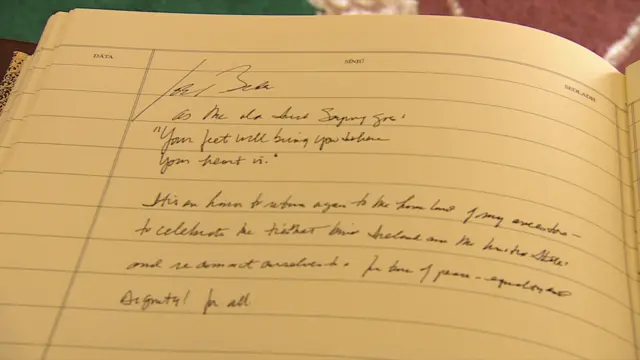 DÁTA SÍNIÚ SEOLADH
Joe Biden
as the old Irish Saying goes
"Your feet will bring you where
Your heart is."
It's an honor to return again to the home land of my ancestors –
to celebrate the ties that bind Ireland and the United States
and recommit ourselves to for peace – equality and
Dignity! for all